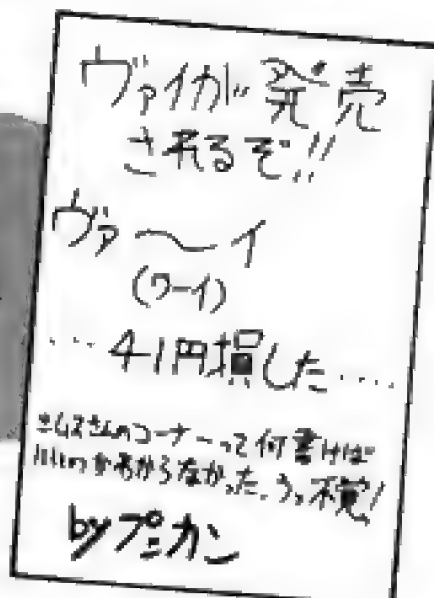 ヴァイが発売
されるぞ!!
ヴァ〜イ
(ワーイ)
…41円損した‥‥
さんのコーナーって何書けば
いいのか分からなかった、うっ不覚!
byプニカン